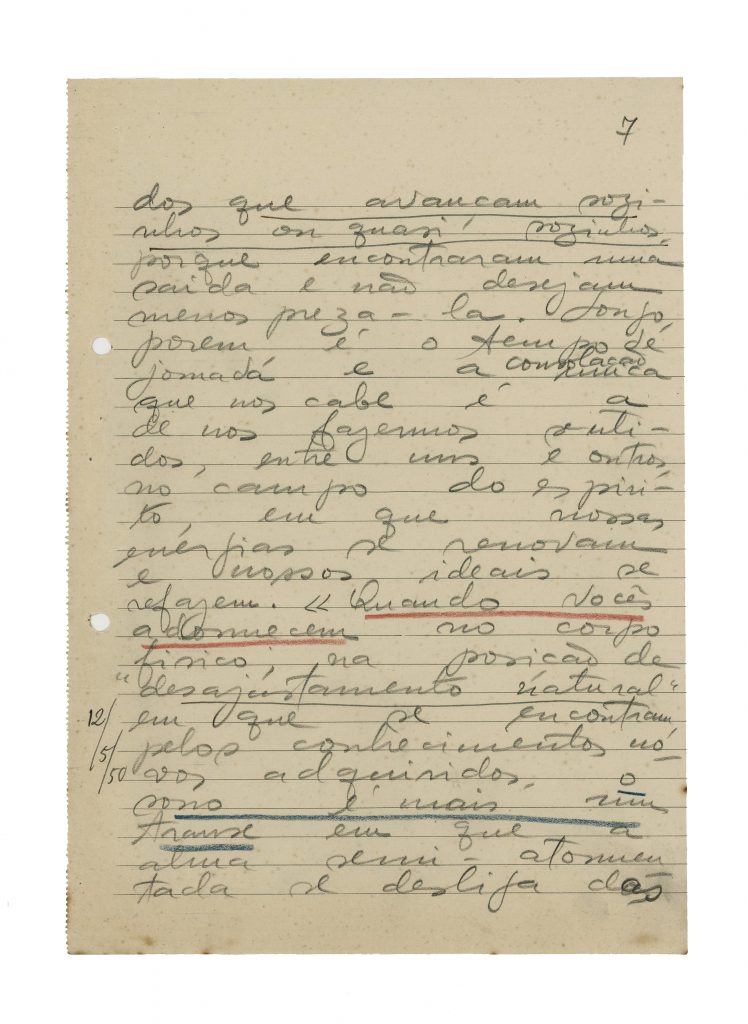 7
dos que avançam sozi-
nhos ou quasi sozinhos,
porque encontraram uma
saida e não desejam
menospreza-la. Longo,
porem é o tempo de
jornada e a consolação
unica
que nos cabe é a
de nos fazermos senti-
dos, entre uns e outros,
no campo do espiri-
to, em que nossas
energias se renovam
e nossos ideais se
refazem. « Quando vocês
adormecem no corpo
fisico, na posição de
"desajustamento natural"
em que se encontram,
12/5/50
pelos conhecimentos no-
vos adquiridos, o
sono é mais um
transe em que a
alma semi-atormen
tada se desliga das